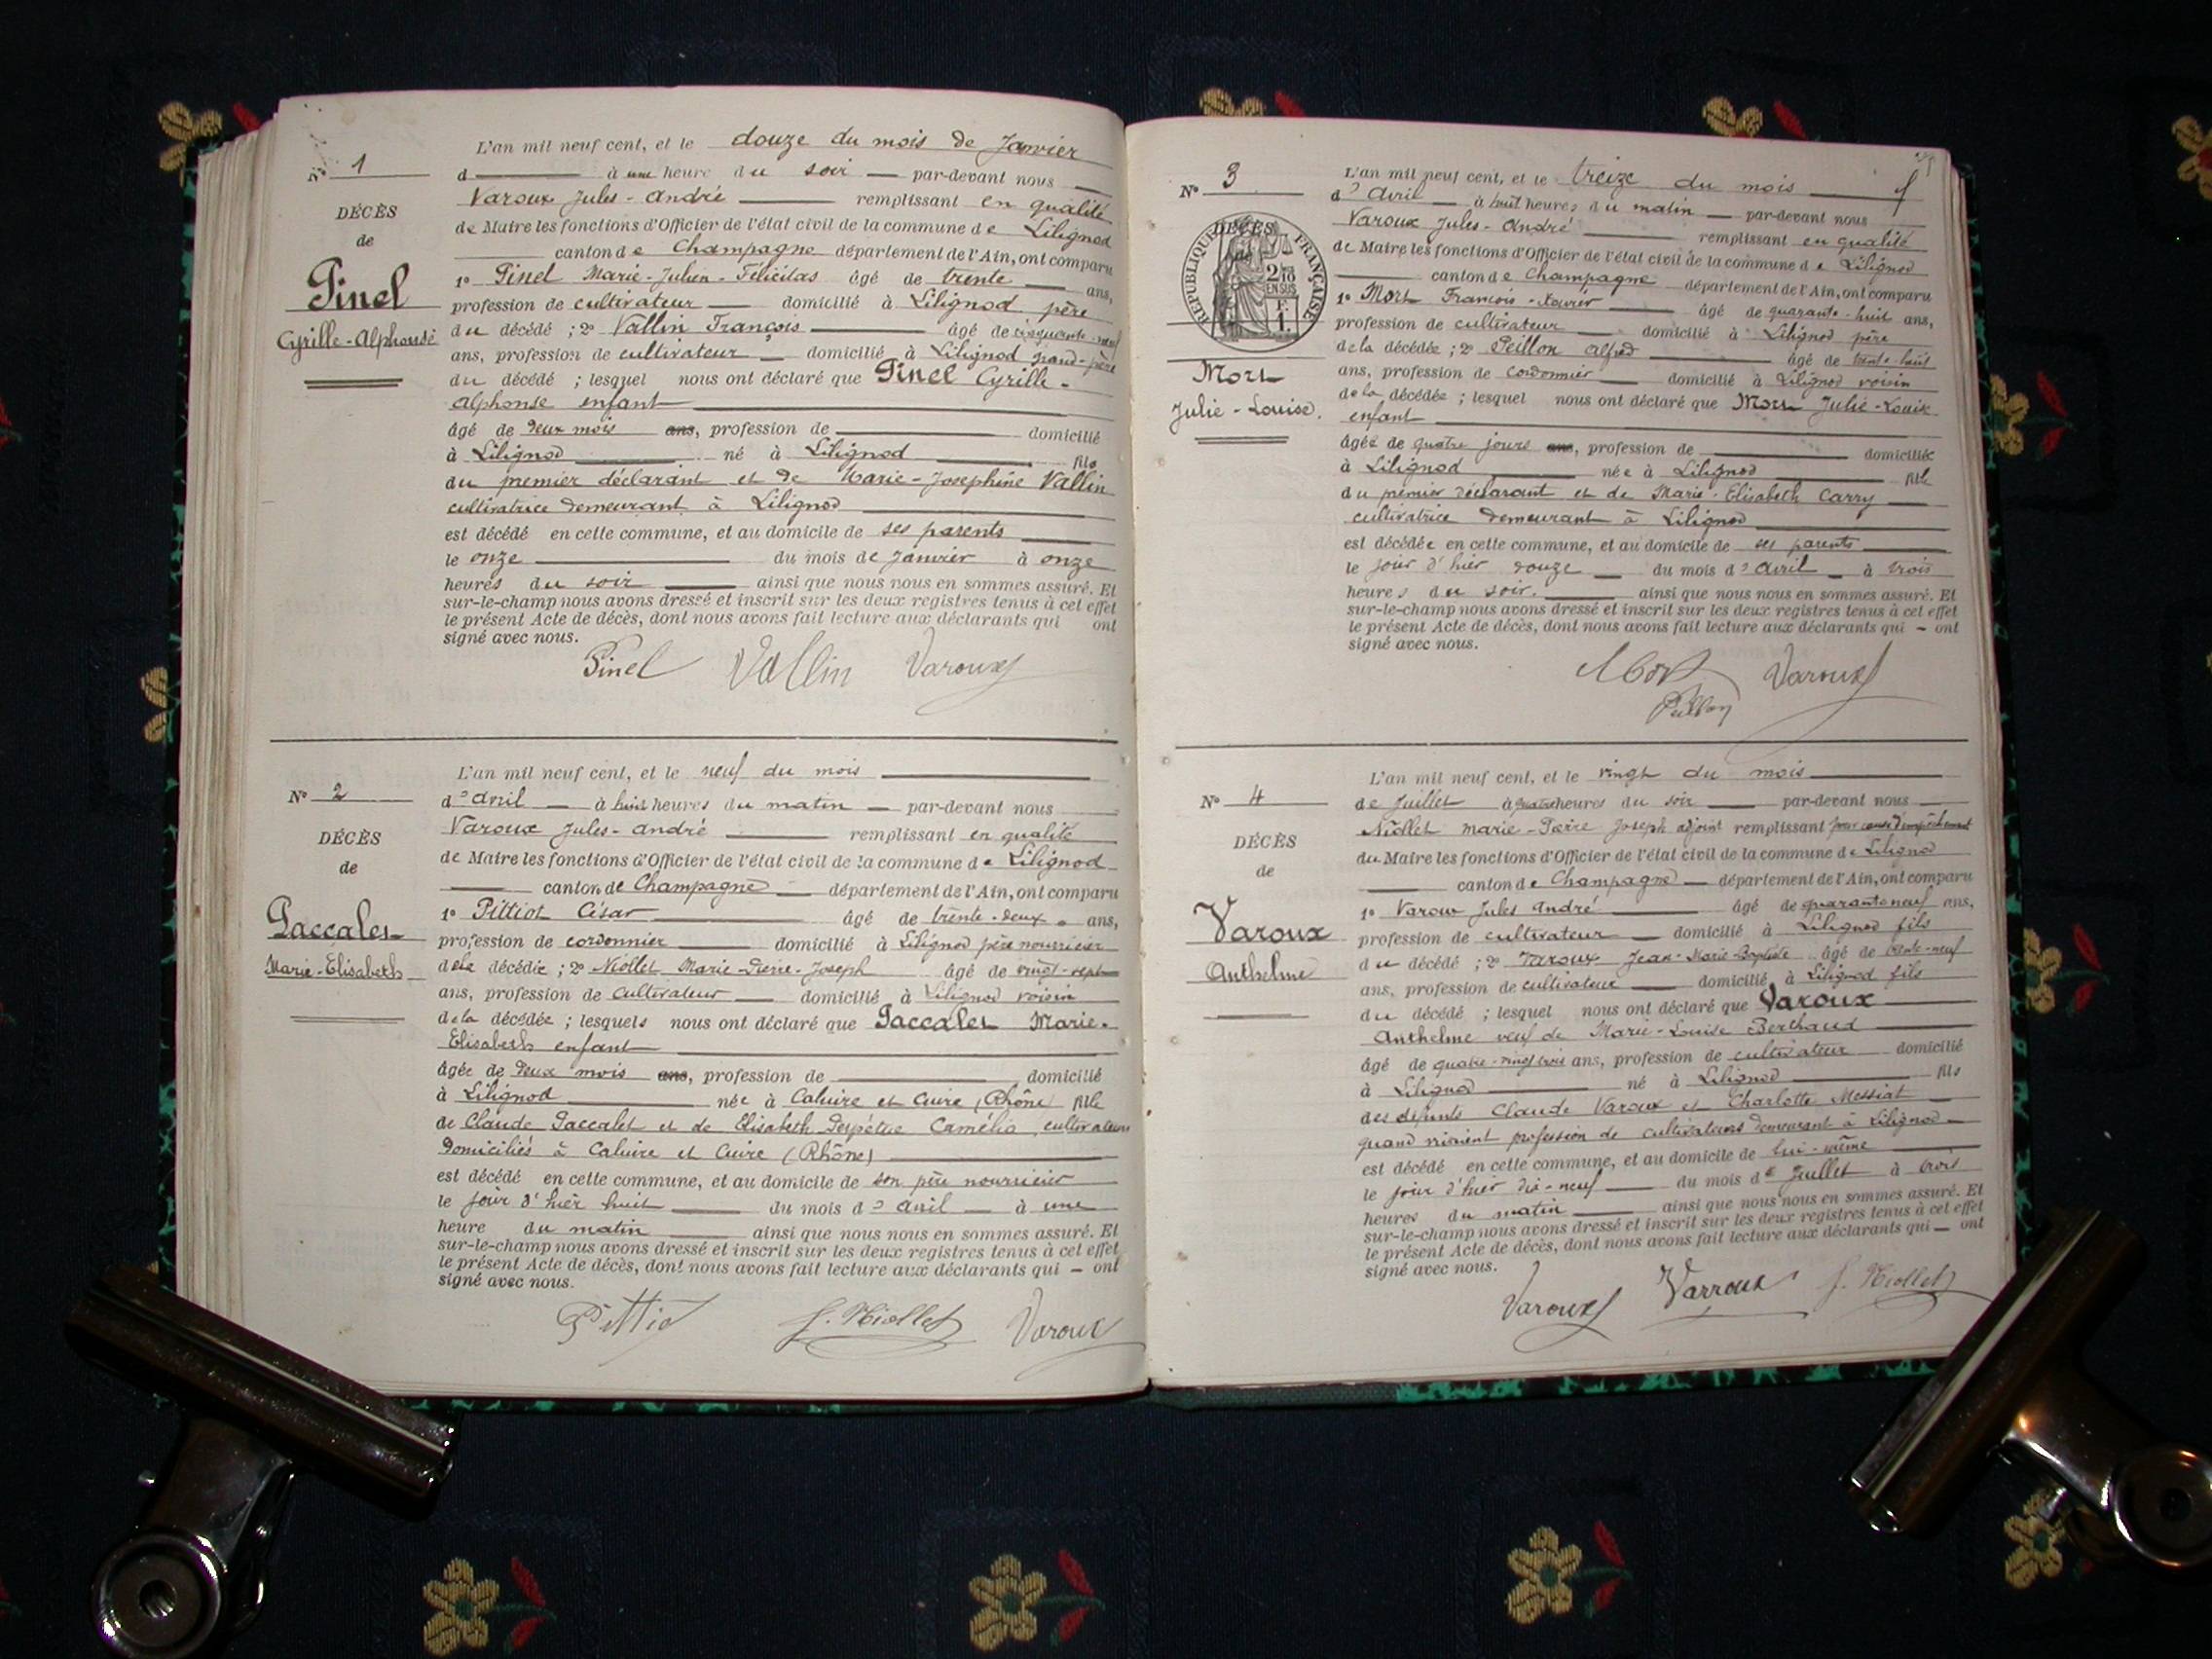 N° 1
DÉCÈS
de
Pinel
Cyrille-Alphonse
L'an mil neuf cent, et le douze du mois de Janvier
d à une heure du soir par-devant nous
Varoux Jules-André remplissant en qualité
de Maire les fonctions d'Officier de l'état civil de la commune de Lilignod
canton de Champagne département de l'Ain, ont comparu
1° Pinel Marie-Julien-Félicitas âgé de trente ans,
profession de cultivateur domicilié à Lilignod père
du décédé ; 2° Vallin François âgé de cinquante-neuf
ans, profession de cultivateur domicilié à Lilignod grand-père
du décédé ; lesquel nous ont déclaré que Pinel Cyrille-
Alphonse enfant
âgé de deux mois ans, profession de domicilié
à Lilignod né à Lilignod fils
du premier déclarant et de Marie-Josephine Vallin
cultivatrice demeurant à Lilignod
est décédé en cette commune, et au domicile de ses parents
le onze du mois de Janvier à onze
heures du soir ainsi que nous nous en sommes assuré. Et
sur-le-champ nous avons dressé et inscrit sur les deux registres tenus à cet effet
le présent Acte de décès, dont nous avons fait lecture aux déclarants qui ont
signé avec nous.
Pinel Vallin Varoux
N° 2
DÉCÈS
de
Paccalet
Marie-Elisabeth
L'an mil neuf cent, et le neuf du mois
d'avril à huit heures du matin par-devant nous
Varoux Jules-André remplissant en qualité
de Maire les fonctions d'Officier de l'état civil de la commune de Lilignod
canton de Champagne département de l'Ain, ont comparu
1° Pittiot César âgé de trente-deux ans,
profession de cordonnier domicilié à Lilignod père nourricier
de la décédée ; 2° Niollet Marie-Pierre-Joseph âgé de vingt-sept
ans, profession de cultivateur domicilié à Lilignod voisin
de la décédée ; lesquels nous ont déclaré que Paccalet Marie-
Elisabeth enfant
âgée de deux mois ans, profession de domicilié
à Lilignod née à Caluire et Cuire (Rhône) fille
de Claude Paccalet et de Elisabeth Perpétue Camélia, cultivateurs
domiciliés à Caluire et Cuire (Rhône)
est décédé en cette commune, et au domicile de son père nourricier
le jour d'hier huit du mois d'avril à une
heure du matin ainsi que nous nous en sommes assuré. Et
sur-le-champ nous avons dressé et inscrit sur les deux registres tenus à cet effet
le présent Acte de décès, dont nous avons fait lecture aux déclarants qui - ont
signé avec nous.
Pittio J. Niollet Varoux
N° 3
DÉCÈS
RÉPUBLIQUE FRANÇAISE
2/10 EN SUS
F. 1.
Mort
Julie-Louise.
L'an mil neuf cent, et le treize du mois
d'Avril à huit heures du matin par-devant nous
Varoux Jules-André remplissant en qualité
de Maire les fonctions d'Officier de l'état civil de la commune de Lilignod
canton de Champagne département de l'Ain, ont comparu
1° Mort François-Xavier âgé de quarante-huit ans,
profession de cultivateur domicilié à Lilignod père
de la décédée ; 2° Peillon Alfred âgé de trente-huit
ans, profession de cordonnier domicilié à Lilignod voisin
de la décédée ; lesquel nous ont déclaré que Mort Julie-Louise
enfant
âgée de quatre jours ans, profession de domiciliée
à Lilignod née à Lilignod fille
du premier déclarant et de Marie-Elisabeth Carry
cultivatrice demeurant à Lilignod
est décédée en cette commune, et au domicile de ses parents
le jour d'hier douze du mois d'avril à trois
heures du soir. ainsi que nous nous en sommes assuré. Et
sur-le-champ nous avons dressé et inscrit sur les deux registres tenus à cet effet
le présent Acte de décès, dont nous avons fait lecture aux déclarants qui - ont
signé avec nous.
Mort Varoux
Peillon
N° 4
DÉCÈS
de
Varoux
Anthelme
L'an mil neuf cent, et le vingt du mois
de Juillet à quatre heures du soir par-devant nous
Niollet Marie-Pierre Joseph adjoint remplissant pour cause d'empêchement
du Maire les fonctions d'Officier de l'état civil de la commune de Lilignod
canton de Champagne département de l'Ain, ont comparu
1° Varoux Jules André âgé de quarante neuf ans,
profession de cultivateur domicilié à Lilignod fils
du décédé ; 2° Varoux Jean-Marie-Baptiste âgé de trente-neuf
ans, profession de cultivateur domicilié à Lilignod fils
du décédé ; lesquel nous ont déclaré que Varoux
Anthelme veuf de Marie-Louise Berthaud
âgé de quatre-vingt trois ans, profession de cultivateur domicilié
à Lilignod né à Lilignod fils
des défunts Claude Varoux et Charlotte Messiat
quand vivaient profession de cultivateurs demeurant à Lilignod
est décédé en cette commune, et au domicile de lui-même
le jour d'hier dix-neuf du mois de Juillet à trois
heures du matin ainsi que nous nous en sommes assuré. Et
sur-le-champ nous avons dressé et inscrit sur les deux registres tenus à cet effet
le présent Acte de décès, dont nous avons fait lecture aux déclarants qui - ont
signé avec nous.
Varoux Varroux J. Niollet